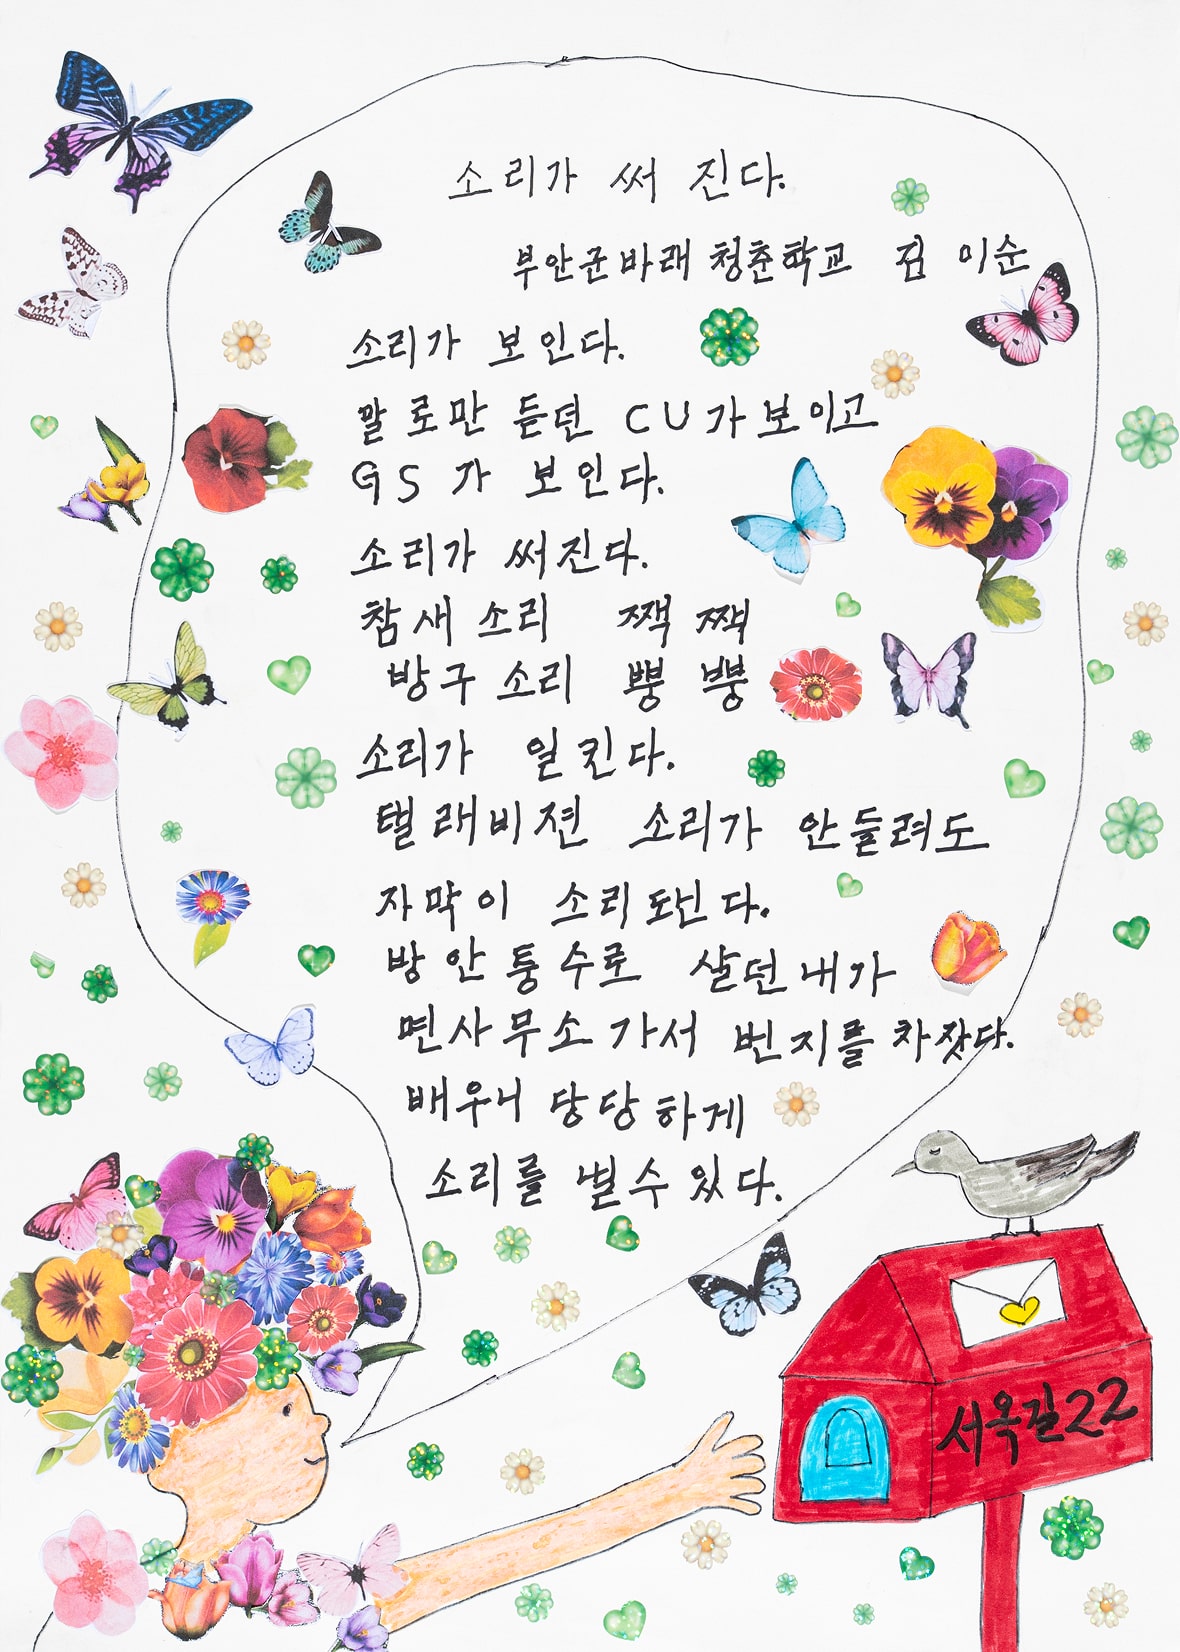 소리가 써 진다.
부안군바래 청춘학교 김 이순
소리가 보인다.
말로만 듣던 CU가보이고
GS가 보인다.
소리가 써진다.
참새소리 짹 짹
방구소리 뿡 뿡
소리가 일킨다.
탤래비젼 소리가 안들려도
자막이 소리도닌다.
방안퉁수로 살던내가
면사무소가서 번지를차잣다.
배우니 당당하게
소리를 낼수있다.
서옥길22